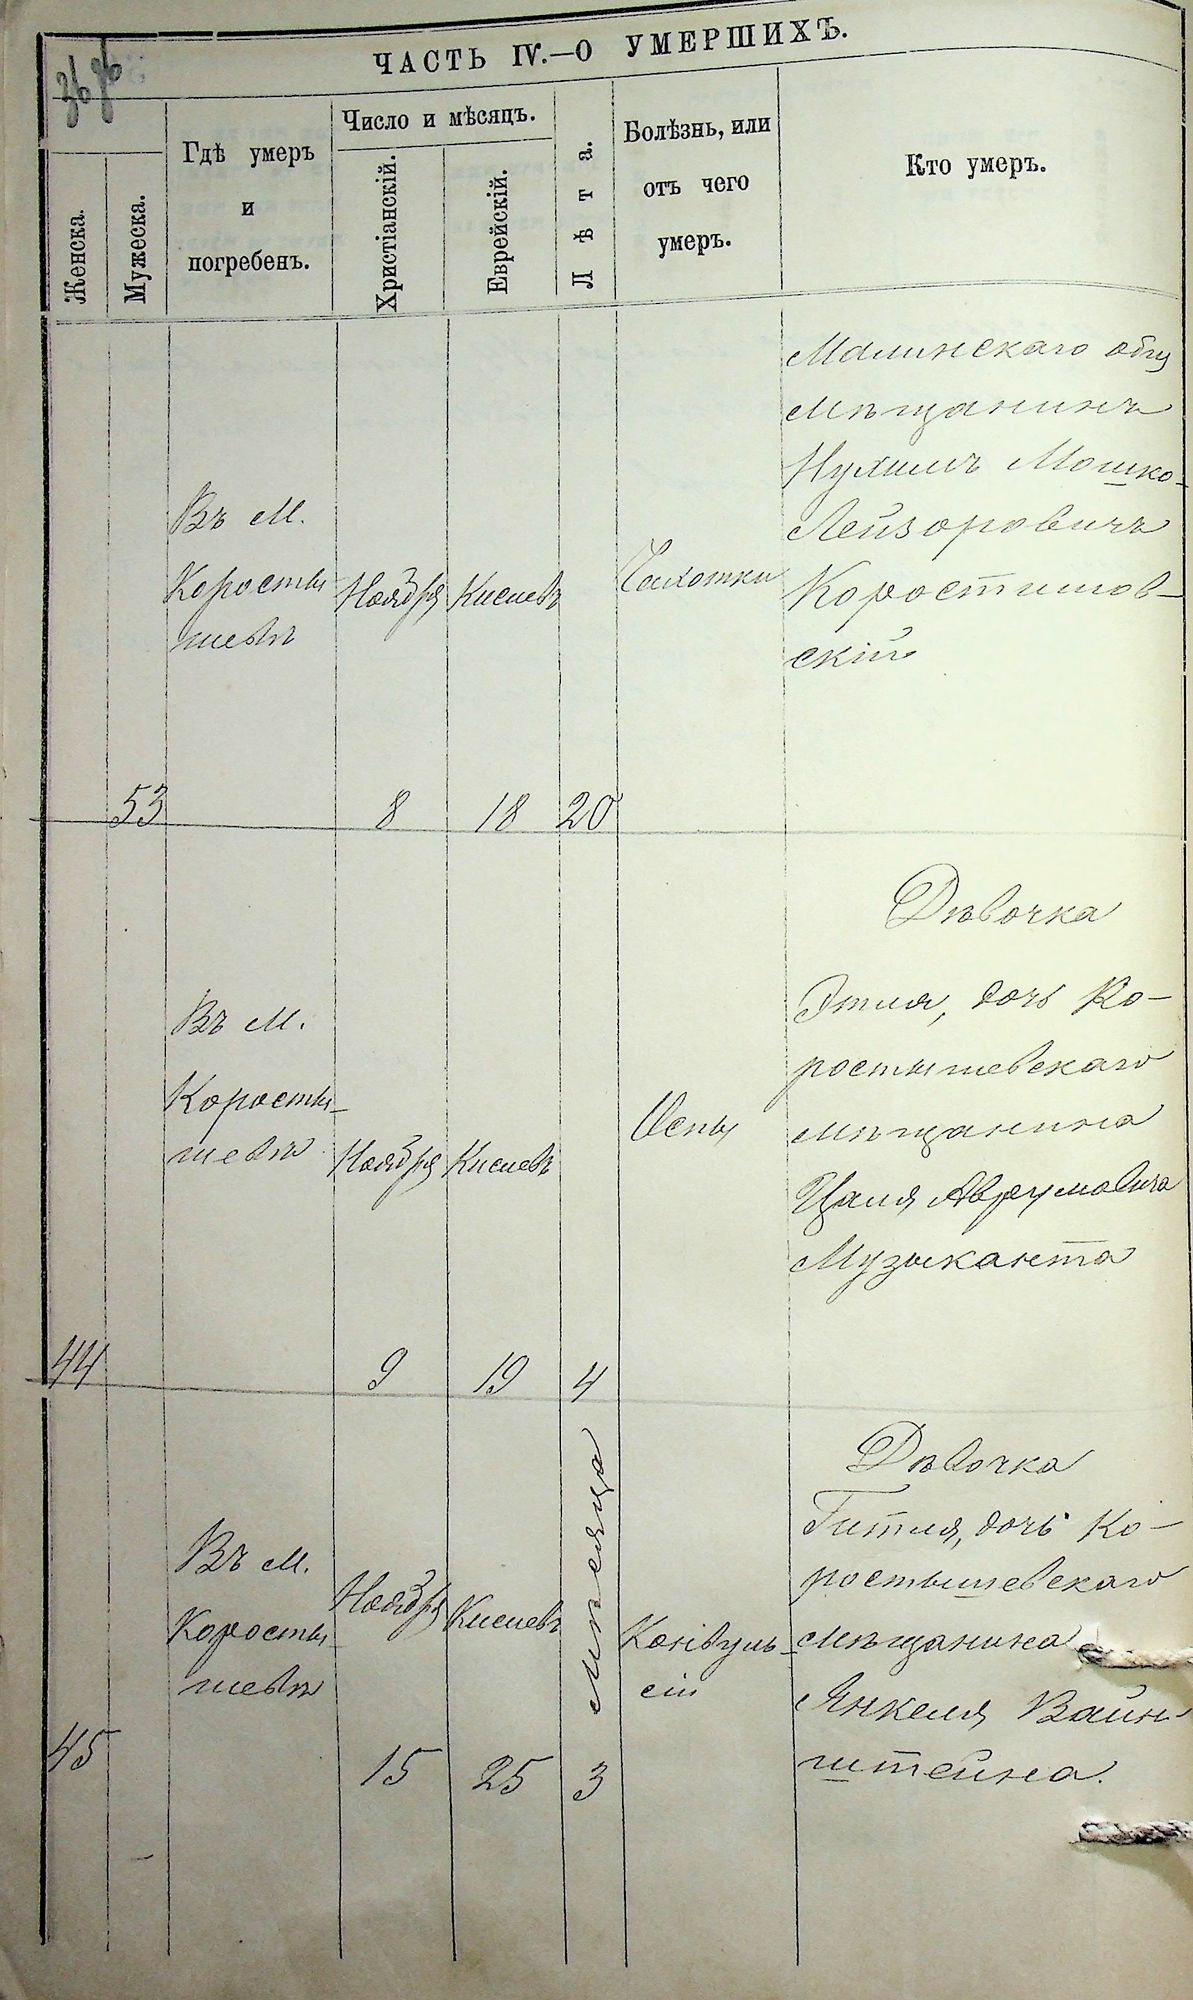 ЧАСТЬ IV.—О УМЕРШИХЪ.
Женска.
Мужеска.
Гдѣ умеръ
и
погребенъ.
Число и мѣсяцъ.
Христіанскій.
Еврейскій.
Лѣта.
Болѣзнь, или
отъ чего
умеръ.
Кто умеръ.
53
Въ м.
Коросты-
шевѣ
Ноября
8
Кислевъ
18
20
Чахотки
Малинскаго общ
мѣщанинъ
Нухимъ Мошко-
Лейзоровичъ
Коростишов-
скій
44
Въ м.
Коросты-
шевѣ
Ноября
9
Кислевъ
19
4
Оспы
Дѣвочка
Этля, дочь Ко-
ростышевскаго
мѣщанина
Цаля Аврумовича
Музыканта
45
Въ м.
Коросты-
шевѣ
Ноября
15
Кислевъ
25
3
мѣсяца
Конвуль-
сіи
Дѣвочка
Гитля, дочь Ко-
ростышевскаго
мѣщанина
Янкеля Вайн-
штейна.